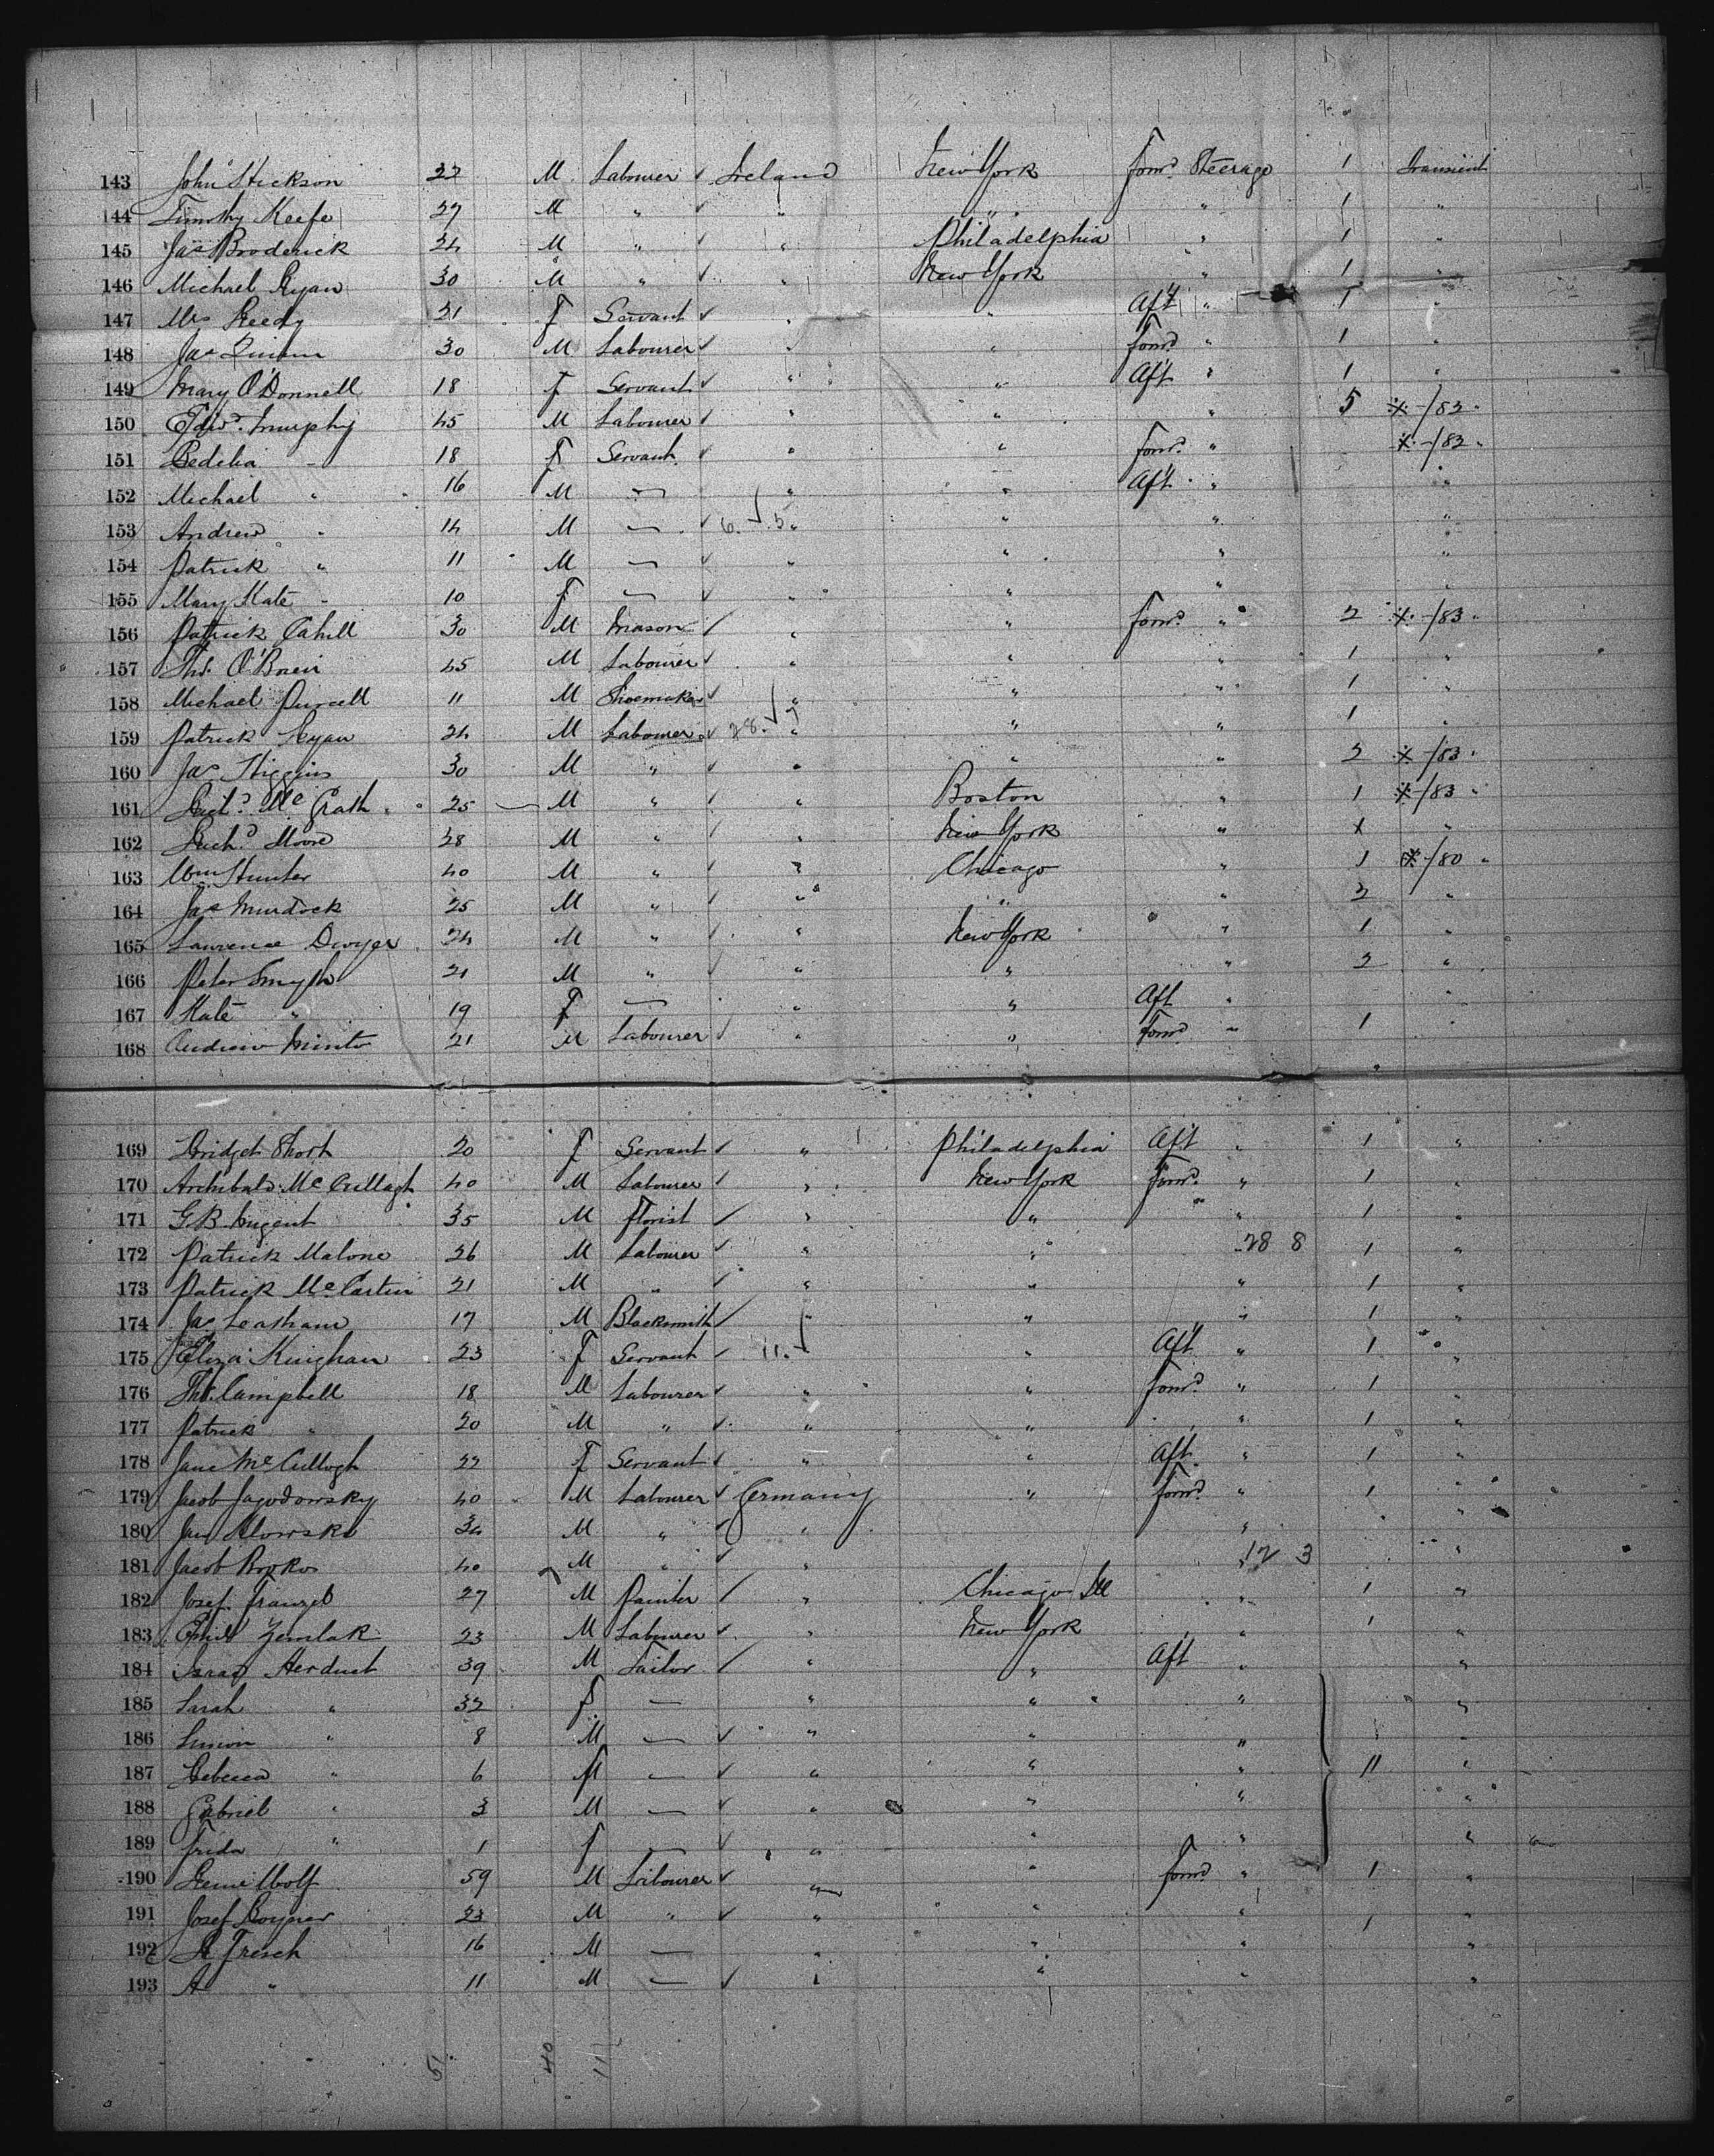 143 John Hickson 22 M Labourer ✓ Ireland New York Forwd. Steerage 1 Transient
144 Timothy Keefe 27 M " ✓ " " " 1 "
145 Jas Broderick 24 M " ✓ " Philadelphia " 1 "
146 Michael Ryan 30 M " ✓ " New York " 1 "
147 Mrs Reedy 21 F Servant ✓ " " Aft " 1 "
148 Jas 30 M Labourer ✓ " " Forwd " 1 "
149 Mary O'Donnell 18 F Servant ✓ " " Aft " 1 "
150 Edwd. Murphy 45 M Labourer ✓ " " " 5 X-/82 "
151 Bedelia " 18 F Servant ✓ " " Forwd. " X-/82 "
152 Michael " 16 M — " " Aft " "
153 Andrew " 14 M — ✓ 6. ✓ 5 " " " "
154 Patrick " 11 M — ✓ " " " "
155 Mary Kate " 10 F — ✓ " " " "
156 Patrick Cahill 30 M Mason ✓ " " Forwd. " 2 X-/83 "
157 Ths. O'Brien 45 M Labourer ✓ " " " 1 "
158 Michael Purcell 11 M Shoemaker ✓ " " " 1 "
159 Patrick Ryan 24 M Labourer ✓ 28. ✓ 7 " " " 1 "
160 Jas Higgins 30 M " ✓ " " " 2 X-/83 "
161 Richd. Mc Grath 25 — M " ✓ " Boston " 1 X-/83 "
162 Richd. Moore 28 M " ✓ " New York " 1 "
163 Wm Hunter 40 M " ✓ " Chicago " 1 X-/80 "
164 Jas Murdock 25 M " ✓ " " " 2 "
165 Lawrence Dwyer 24 M " ✓ " New York " 1 "
166 Peter Smyth 21 M " ✓ " " " 2 "
167 Kate " 19 F — " " Aft " "
168 Andrew Minto 21 M Labourer ✓ " " Forwd " 1 "
169 Bridget Short 20 F Servant ✓ " Philadelphia Aft " 1 "
170 Archibald Mc Cullagh 40 M Labourer ✓ " New York Forwd. " 1 "
171 G.B. Nugent 35 M Florist ✓ " " " " 1 "
172 Patrick Malone 26 M Labourer ✓ " " 28 8 1 "
173 Patrick Mc Cartin 21 M " ✓ " " " 1 "
174 Jas Leatham 17 M Blacksmith ✓ " " " 1 "
175 Eliza Kinghan 23 F Servant ✓ 11. ✓ " Aft " 1 "
176 Ths. Campbell 18 M Labourer ✓ " " Forwd. " 1 "
177 Patrick " 20 M " ✓ " " " 1 "
178 Jane Mc Cullogh 22 F Servant ✓ " " Aft. " 1 "
179 Jacob Jagodowsky 40 M Labourer ✓ Germany " Forwd. " 1 "
180 Jan 34 M " ✓ " " "
181 Jacob 40 M " ✓ " " 12 3 "
182 Josef Franzel 27 M Painter ✓ " Chicago Ill " 1 "
183 Emil Zemlak 23 M Labourer ✓ " New York " 1 "
184 Isaac 39 M Tailor ✓ " " Aft " "
185 Sarah " 32 F — " " " "
186 Simon " 8 M — ✓ " " " "
187 Rebecca " 6 F — ✓ " " " 11 "
188 Gabriel " 3 M — ✓ " " " "
189 Frida " 1 F — ✓ " " " "
190 Wolf 59 M Labourer ✓ " " Forwd " 1 "
191 Josef 23 M " ✓ " " " 1 "
192 16 M — " " " "
193 A " 11 M — ✓ " " " "
51. 40 11